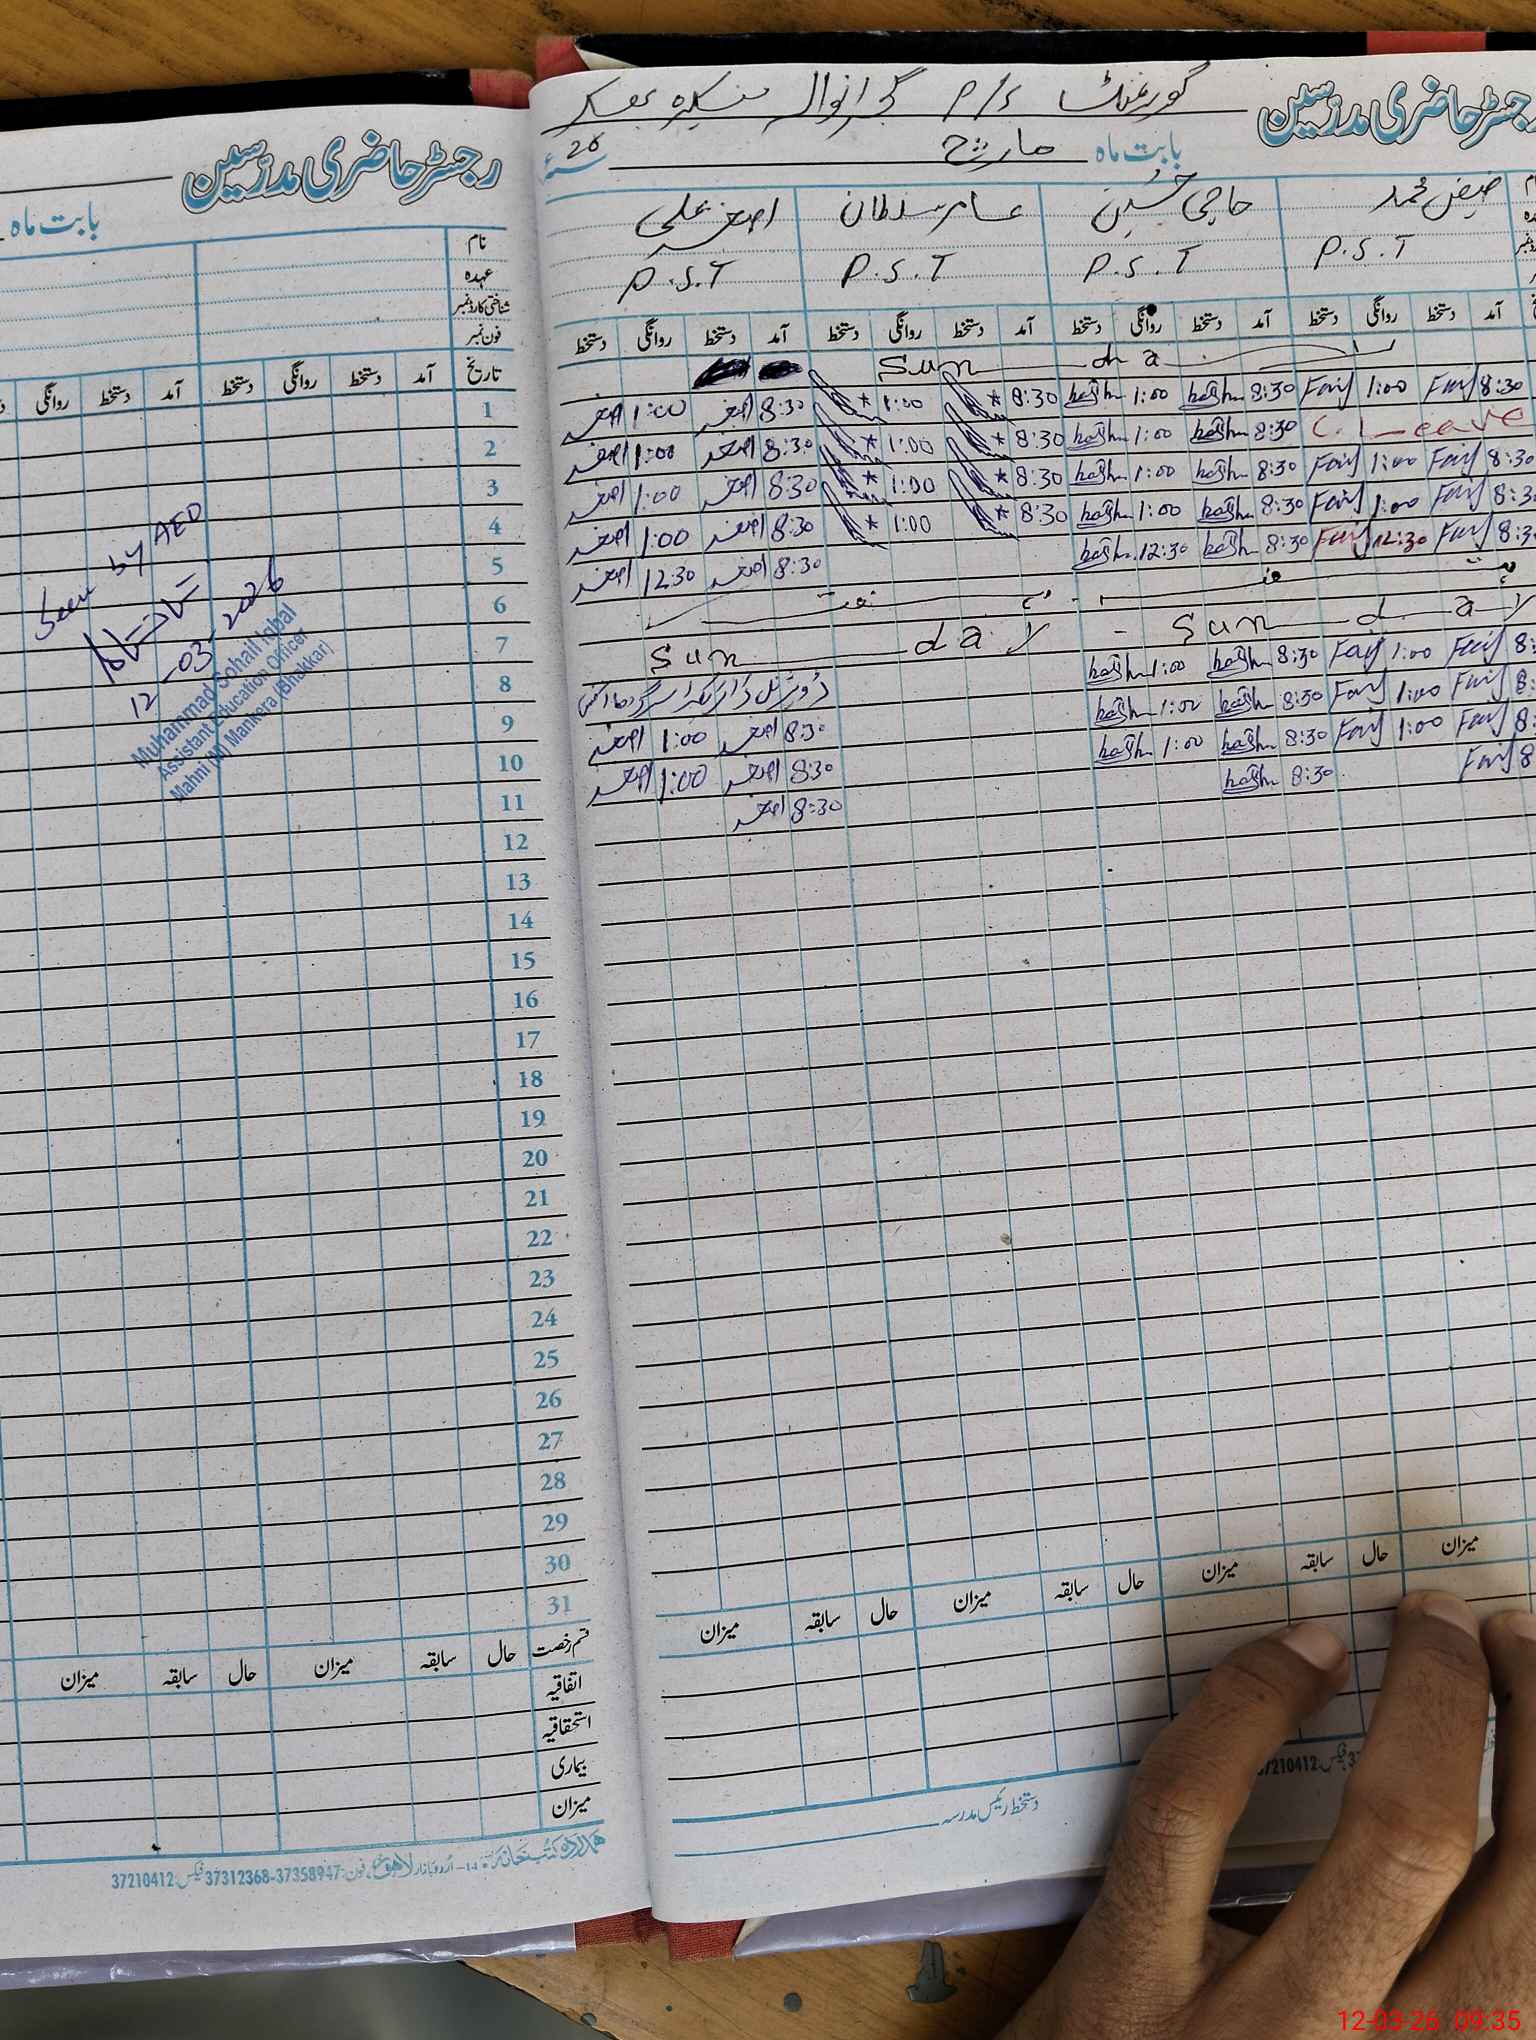 رجسٹر حاضری مدرسین
بابت ماہ
نام
عہدہ
شناختی کارڈ نمبر
فون نمبر
تاریخ آمد دستخط روانگی دستخط آمد دستخط روانگی
1
2
3
4
5
6
7
8
9
10
11
12
13
14
15
16
17
18
19
20
21
22
23
24
25
26
27
28
29
30
31
Seen by AEO
12-03-2026
Muhammad Sohail Iqbal
Assistant Education Officer
Mahni (M) Mankera (Bhakkar)
قسم رخصت حال سابقہ میزان حال سابقہ میزان
اتفاقیہ
استحقاقیہ
بیماری
میزان
اُردو بازار لاہور فون: 37358947-37312368 فیکس: 37210412
رجسٹر حاضری مدرسین گورنمنٹ P/S
بابت ماہ مارچ 26
فیض محمد حاجی حسین عامر سلطان اصغر علی
P.S.T P.S.T P.S.T P.S.T
آمد دستخط روانگی دستخط آمد دستخط روانگی دستخط آمد دستخط روانگی دستخط آمد دستخط روانگی دستخط
Sun da
8:30 1:00 8:30 1:00 8:30 1:00 8:30 اصغر 1:00 اصغر
C. Leave 8:30 1:00 8:30 1:00 8:30 اصغر 1:00 اصغر
8:30 1:00 8:30 1:00 8:30 1:00 8:30 اصغر 1:00 اصغر
8:3 1:00 8:30 1:00 8:30 1:00 8:30 اصغر 1:00 اصغر
8:3 12:30 8:30 12:30 8:30 اصغر 12:30 اصغر
Sun day Sun day
8: 1:00 8:30 1:00
8: 1:00 8:30 1:00 8:30 اصغر 1:00 اصغر
8: 1:00 8:30 1:00 8:30 اصغر 1:00 اصغر
8 8:30 8:30 اصغر
میزان حال سابقہ میزان حال سابقہ میزان حال سابقہ میزان
دستخط رئیس مدرسہ
37210412
12-03-26 09:35